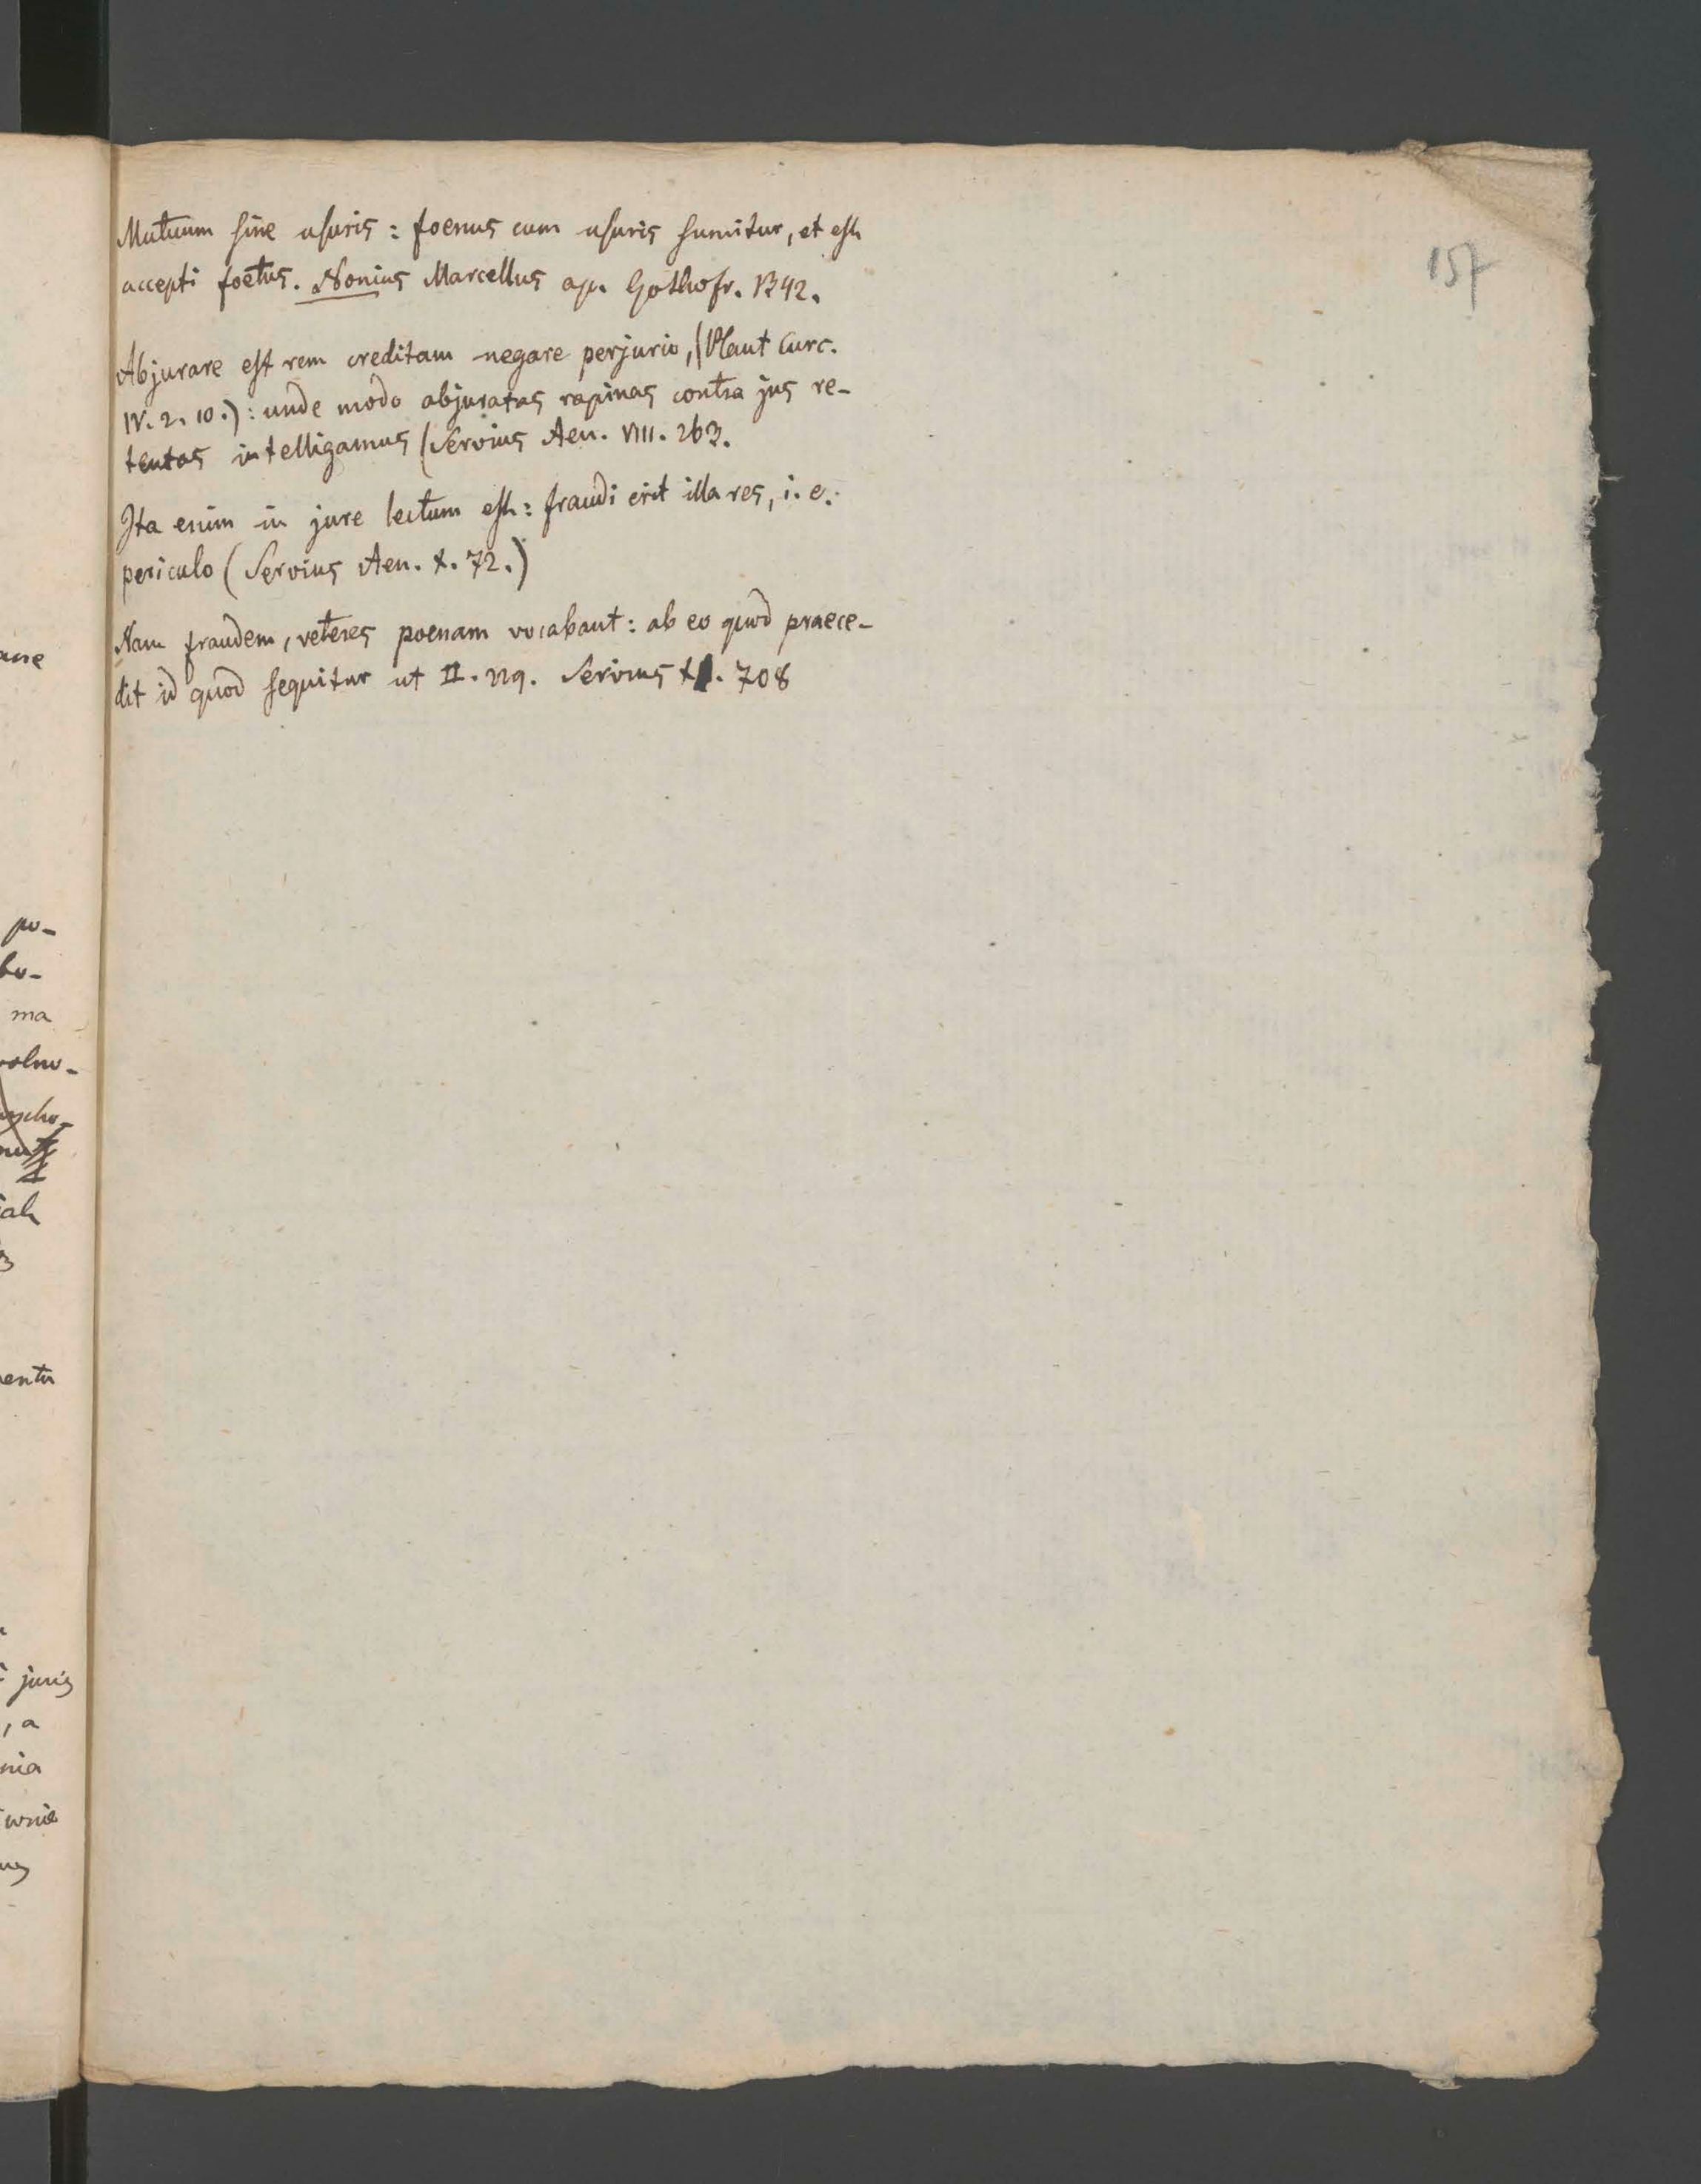 157
Mutuum sine usuris: foenus cum usuris sumitur, et est
accepti foetus. Nonius Marcellus ap. Gothofr. 1342.
Abjurare est rem creditam negare perjurio, (Plaut Curc.
IV. 2. 10.): unde modo abjuratas rapinas contra jus re-
tentas intelligamus (Servius Aen. VIII. 263.
Ita enim in jure lectum est: fraudi erit illa res, i. e.
periculo (Servius Aen. X. 72.)
Nam fraudem, veteres poenam vocabant: ab eo quod praece-
dit id quod sequitur ut II. 229. Servius XI. 708
po-
ma
juris
, a
nia